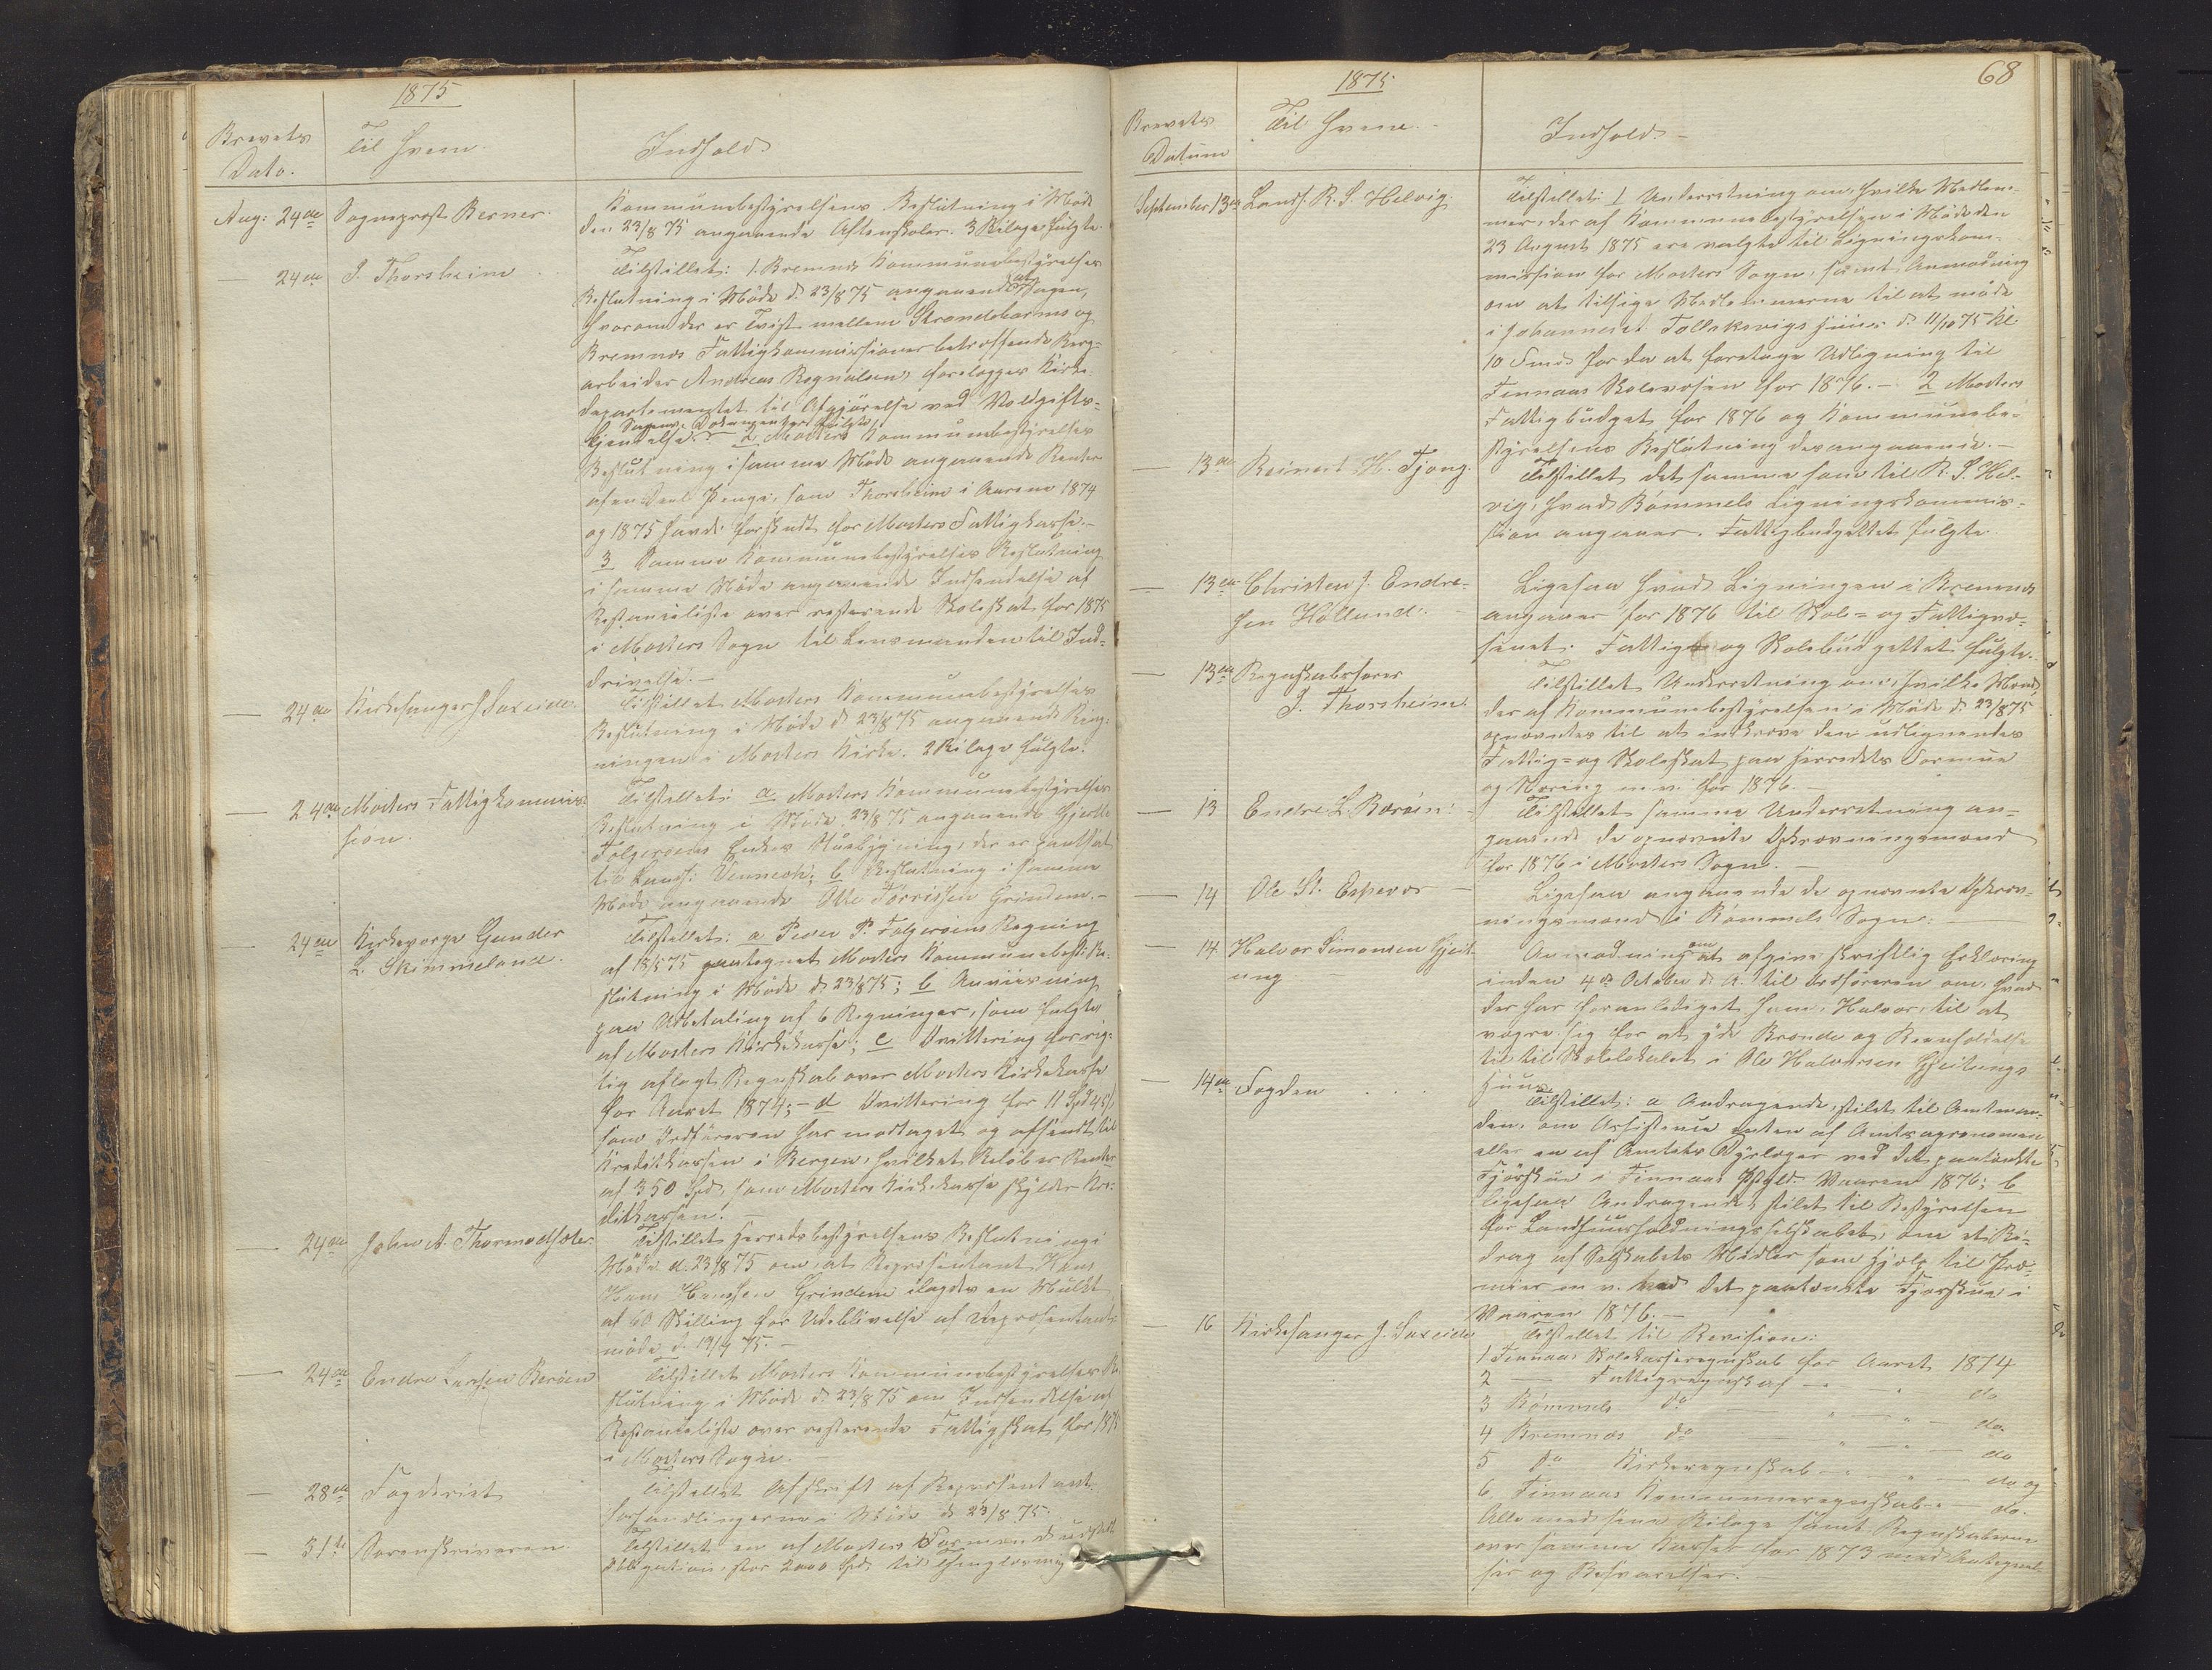 1875
Brevets
Dato.
Til Hvem.
Indhold
Aug: 24de
Sogneprest Berner.
Kommunebestyrelsens Beslutning i Møde
den 23/8 75 angaaende Aftenskoler. 3 Bilage fulgte.
— 24de
J. Thorsheim
Tilstillet: 1. Bremnes Kommunebestyrelses
Beslutning i Møde d. 23/8 75 angaaende at Sagen,
hvorom der er Tvist mellem Strandebarms og
Bremnes Fattigkommissioner betræffende Berg-
arbeider Andreas Rognalsen, forelægges Kirke-
departementet til Afgjørelse ved Voldgifts-
Sagens Dokumenter fulgte
kjendelse. — 2 Mosters Kommunebestyrelses
Beslutning i samme Møde angaaende Renter
af en Deel Penge, som Thorsheim i Aarene 1874
og 1875 havde forskudt for Mosters Fattigkasse. —
3 Samme Kommunebestyrelses Beslutning
i samme Møde angaaende Indsendelse af
Restanceliste over resterende Skoleskat for 1875
i Mosters Sogn til Lensmanden til Ind-
drivelse. —
— 24de
Kirkesanger J Saxeide.
Tilstillet Mosters Kommunebestyrelses
Beslutning i Møde d. 23/8 75 angaaende Ring-
ningen i Mosters Kirke. 2 Bilage fulgte.
— 24de
Mosters Fattigkommis-
sion.
Tilstillet: a Mosters Kommunebestyrelses
Beslutning i Møde 23/8 75 angaaende Gjertr.
Følgerøens Enkes Huusbygning, der er pantsat
til Landh: Vennech; b Beslutning i samme
Møde angaaende Ole Torrissen Grindem. —
— 24de
Kirkeværge Gunder
L. Skimmeland.
Tilstillet: a Peder P. Følgerøens Regning
af 18/5 75 paategnet Mosters Kommunebest: Be-
slutning i Møde d. 23/8 75; b Anviisning
paa Udbetaling af 6 Regninger, som fulgte
af Mosters Kirkekasse; c Qvittering for rig-
tig aflagt Regnskab over Mosters Kirkekasse
for Aaret 1874; — d Qvittering for 11 Spd 45 s,
som Ordføreren har modtaget og afsendt til
Kreditkassen i Bergen, hvilket Beløb er Renter
af 350 Spd, som Mosters Kirkekasse skylder Kre-
ditkassen. —
— 24de
John A. Thormodsæter
Tilstillet Herredsbestyrelsens Beslutning i
Møde d. 23/8 75 om, at Repræsentant Hans
Hans Hanssen Grindem ilagdes en Mulkt
af 60 Skilling for Udeblivelse af Repræsentant-
møde d. 19/4 75. —
— 24de
Endre Larsen Berøen
Tilstillet Mosters Kommunebestyrelses Be-
slutning i Møde d. 23/8 75 om Indsendelse af
Restanceliste over resterende Fattigskat for 1875
i Mosters Sogn. —
— 28de
Fogderiet
Tilstillet Afskrift af Repræsentant-
forhandlingerne i Møde d. 23/8 75.
— 31te
Sorenskriveren.
Tilstillet en af Mosters Formænd udstedt
Obligation, stor 2000 Spd, til Thinglæsning
1875
68
Brevets
Datum
Til Hvem. —
Indhold. —
September 13de
Landh. R. S. Helvig.
Tilstillet: 1 Underretning om, hvilke Medlem-
mer, der af Kommunebestyrelsen i Møde den
23 August 1875 ere valgte til Ligningskom-
mission for Mosters Sogn, samt Anmodning
om at tilsige Medlemmerne til at møde
i Johannes Tollaksvigs Huus d. 11/10 75 Kl.
10 Fmd for der at foretage Udligning til
Finnaas Skolevæsen for 1876. — 2 Mosters
Fattigbudget for 1876 og Kommunebe-
styrelsens Beslutning desangaaende. —
— 13de
Reinert H. Tjong.
Tilstillet det samme som til R. S. Hel-
vig, hvad Bømmels Ligningskommis-
sion angaaer. Fattigbudgettet fulgte.
— 13de
Christen J. Endre-
sen Hollund.
Ligesaa hvad Ligningen i Bremnes
angaaer for 1876 til Skole- og Fattigvæ-
senet. Fattig og Skolebudgettet fulgte.
— 13de
Regnskabsfører
J. Thorsheim.
Tilstillet Underretning om, hvilke Mænd,
der af Kommunebestyrelsen i Møde d. 23/8 75
opnævntes til at inkræve den udlignendes
Fattig- og Skoleskat paa Herredets Formue
og Næring m. v. for 1876. —
— 13
Endre L. Berøen.
Tilstillet samme Underretning an-
gaaende de opnævnte Opkrævningsmænd
for 1876 i Mosters Sogn. —
— 14
Ole St. Espevær —
Ligesaa angaaende de opnævnte Opkræv-
ningsmænd i Bømmels Sogn. —
— 14
Halvor Simonsen Gjeit-
ung
Anmodning om at afgive skriftlig Erklæring
inden 4de October d. A. til Ordføreren om, hvad
der har foranlediget ham, Halvor, til at
vægre sig for at yde Brænde og Reenholdelse
til til Skolelokalet i Ole Halvorsen Gjeitungs
Huus.
— 14de
Fogden . . .
Tilstillet: a Andragende, stilet til Amtman-
den, om Assistence enten af Amtsagronomen
eller en af Amtets Dyrlæger ved det paatænkte
Fjørskue i Finnaas Prgld. Vaaren 1876; b
ligesaa Andragende stilet til Bestyrelsen
for Landhuusholdningsselskabet, om et Bi-
drag af Selskabets Midler som Hjælp til Præ-
mier m. v. ved det paatænkte Fjørskue i
Vaaren 1876. —
— 16
Kirkesanger J. Saxeide
Tilstillet til Revision:
1 Finnaas Skolekasseregnskab for Aaret 1874
2 — Fattigregnskab — " — do
3 Bømmels do — " — " — do.
4 Bremnæs do — " — " — do
5 do Kirkeregnskab — " — do og
6. Finnaas Kommuneregnskab — do.
Alle med sine Bilage samt Regnskaberne
over samme Kasser for 1873 med Antegnel-
ser og Besvarelser. —